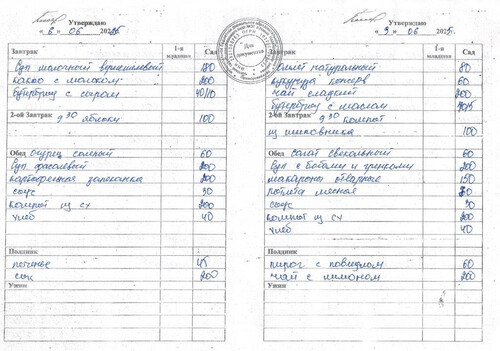 Утверждаю
« 6 » 06 2025
Завтрак
1-я младшая
Сад
Суп молочный вермишелевый 180
какао с молоком 200
бутерброд с сыром 40/10
2-ой Завтрак 9 30 яблоки 100
Обед огурец соленый 60
Суп фасолевый 200
картофельная запеканка 200
соус 30
компот из сх 200
хлеб 40
Полдник
печенье 45
сок 200
Ужин
Для документов
Утверждаю
« 9 » 06 2025.
Завтрак
1-я младшая
Сад
омлет натуральный 80
кукуруза консерв 60
чай сладкий 200
бутерброд с маслом
2-ой Завтрак 9 30 компот
из шиповника 100
Обед салат свекольный 60
Суп с бобами и гренками 200
макароны отварные 150
котлета мясная
соус 30
компот из сх 200
хлеб 40
Полдник
пирог с повидлом 60
чай с лимоном 200
Ужин